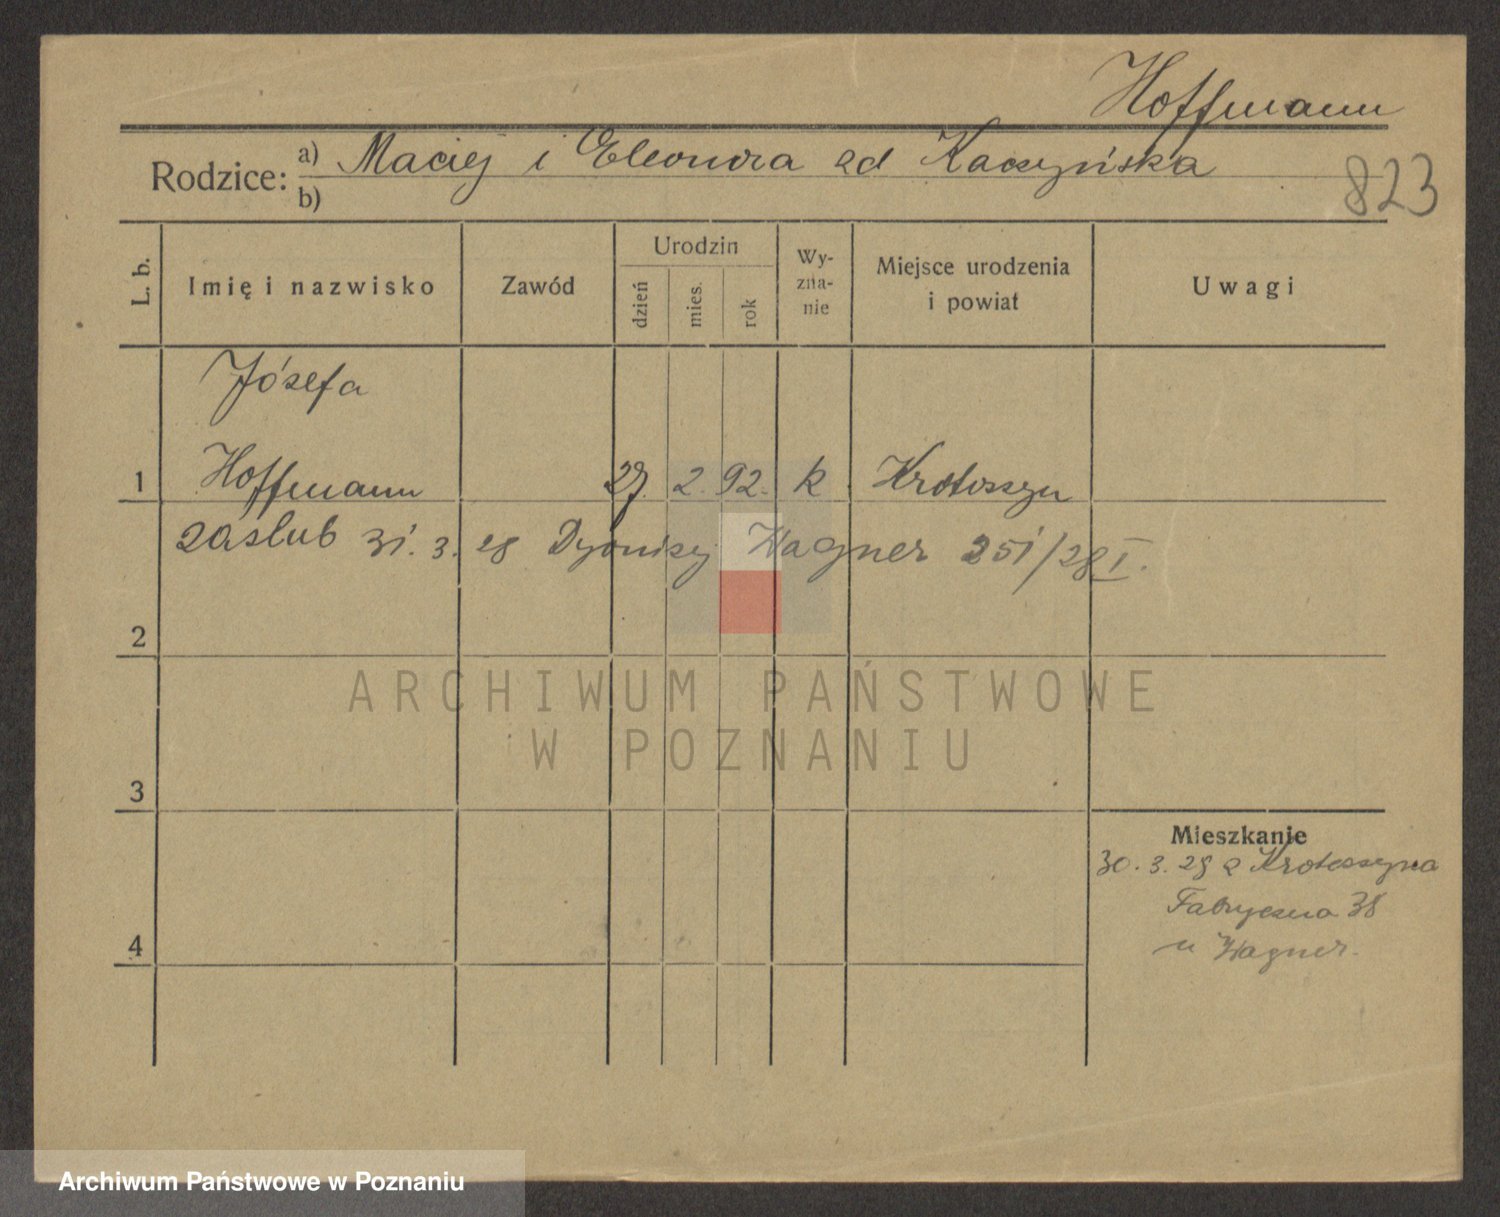 Hoffmann
Rodzice: a) Maciej i Eleonora zd Kaczyńska
b)
823
L. b.
Imię i nazwisko
Zawód
Urodzin
dzień
mies.
rok
Wy-
zna-
nie
Miejsce urodzenia
i powiat
Uwagi
Józefa
1 Hoffmann 27. 2. 92. k Krotoszyn
zaślub 31. 3. 28 Dyonizy Wagner 251/28 I.
2
ARCHIWUM PAŃSTWOWE
W POZNANIU
3
Mieszkanie
30. 3. 28 z Krotoszyna
Fabryczna 38
4
u Wagner.
Archiwum Państwowe w Poznaniu